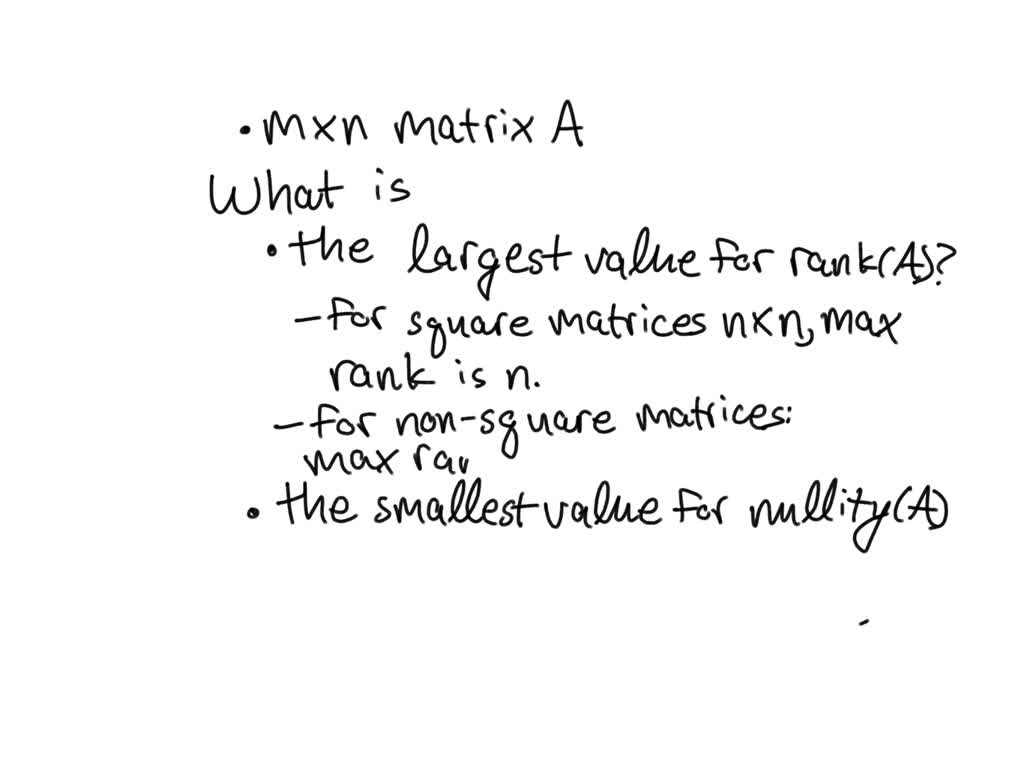 • mxn matrix A
What is
• the largest value for rank(A)?
- for square matrices nxn, max
rank is n.
- for non-square matrices:
max
• the smallest value for nullity(A)